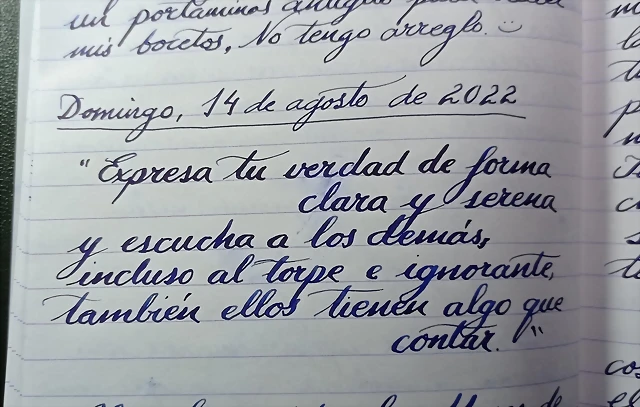 un portaminas antiguo para
mis bocetos. No tengo arreglo.
Domingo, 14 de agosto de 2022
"Expresa tu verdad de forma
clara y serena
y escucha a los demás,
incluso al torpe e ignorante,
también ellos tienen algo que
contar."